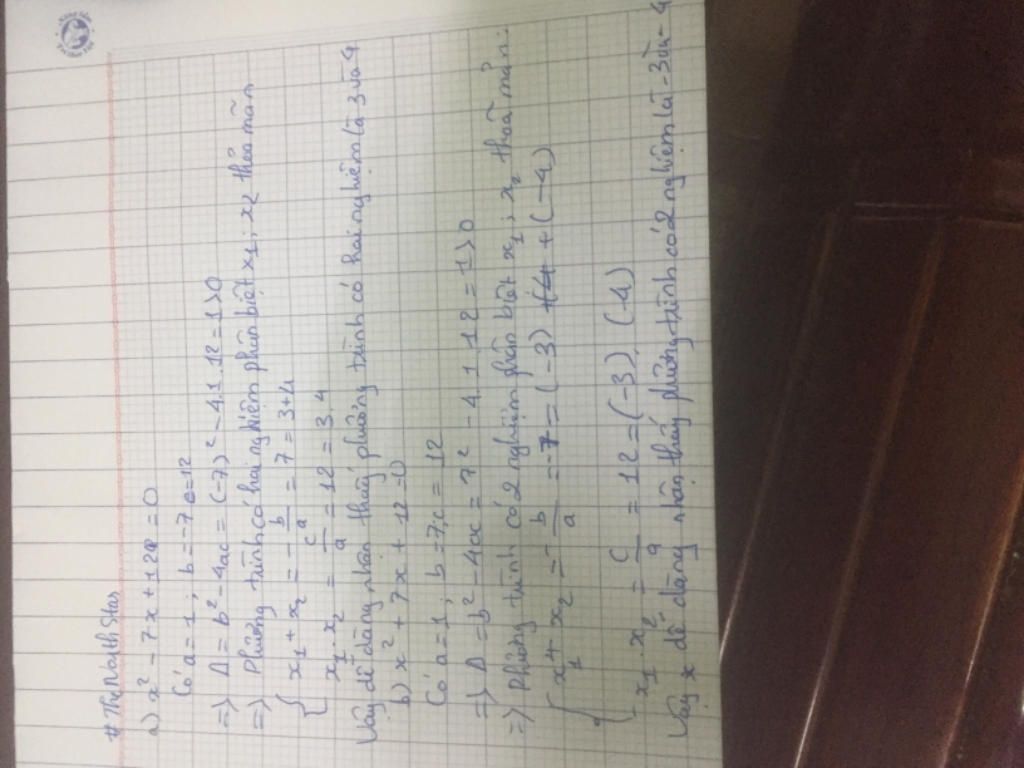 # The North Star
a) x² - 7x + 12 = 0
Có a = 1 ; b = -7 c = 12
=> Δ = b² - 4ac = (-7)² - 4.1.12 = 1 > 0
=> Phương trình có hai nghiệm phân biệt x₁ ; x₂ thỏa mãn
{ x₁ + x₂ = - b/a = 7 = 3 + 4
x₁ . x₂ = c/a = 12 = 3.4
Vậy dễ dàng nhận thấy phương trình có hai nghiệm là 3 và 4
b) x² + 7x + 12 = 0
Có a = 1 ; b = 7 ; c = 12
=> Δ = b² - 4ac = 7² - 4.1.12 = 1 > 0
=> Phương trình có 2 nghiệm phân biệt x₁ ; x₂ thoả mãn :
{ x₁ + x₂ = - b/a = -7 = (-3) + (-4)
x₁ . x₂ = c/a = 12 = (-3) . (-4)
Vậy dễ dàng nhận thấy phương trình có 2 nghiệm là -3 và -4